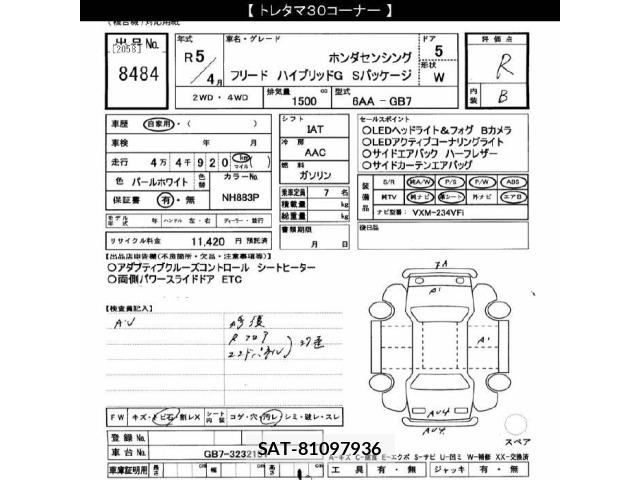 【 トレタマ30コーナー 】
(複合機)対応用紙
出品No.
[2058]
8484
年式
R5/4月
車名・グレード
ホンダセンシング
フリード ハイブリッドG Sパッケージ
ドア
5
形状
W
評価点
R
内装
B
2WD・4WD
排気量
1500 cc
型式
6AA - GB7
車歴 自家用・( )
車検 年 月
走行 4万4千920 km マイル
色 パールホワイト 色替 カラーNo. NH883P
保証書 有・無
モデル年式 年 ハンドル 左・右 ディーラー・並行
リサイクル料金 11,420 円 預託済
シフト
IAT
冷房
AAC
燃料
ガソリン
乗車定員 7 名
積載量 kg
総重量 kg
書類期限
月 日
セールスポイント
○LEDヘッドライト&フォグ Bカメラ
○LEDアクティブコーナリングライト
○サイドエアバック ハーフレザー
○サイドカーテンエアバッグ
装備品
S/R 純A/W P/S P/W ABS
純TV 純ナビ 革シート 外ナビ エアB
ナビ型番: VXM-234VFi
後日品
【出品店申告欄(不良箇所・欠品・注意事項等)】
○アダプティブクルーズコントロール シートヒーター
○両側パワースライドドア ETC
【検査員記入】
A・U
修復
Rフロア
A1
A1
AU4
スペア
FW キズ・トビ石・割レX シート内装 コゲ・穴・汚レ・シミ・破レ・スレ
登録No.
車台No. GB7-3232151
SAT-81097936
A-キズ E-エクボ S-サビ U-凹ミ W-補修 XX-交換済
車庫証明用 長さ cm 幅 cm 高さ cm
工具 有・無 ジャッキ 有・無